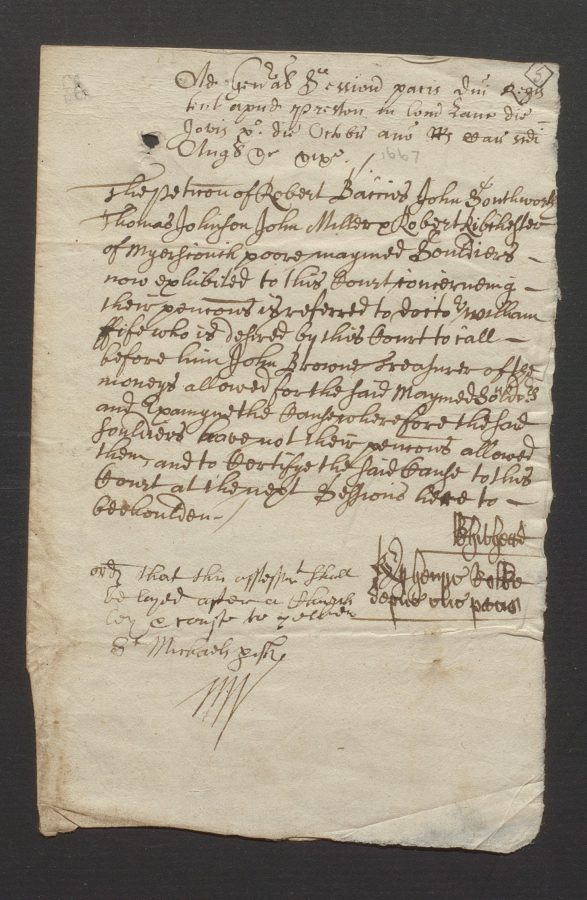 5
Ad Gen'al Session pacis Dni Regis
tent apud Preston in Com Lanc die
Jovis die Octobr Anno RRs Car sedi
Angl &c xix
1667
The Peticon of Robert John Southworth
Thomas Johnson John Miller & Robert Ribchester
of Myerscough poore maymed Souldiers
now exhibited to this Court concerneing
their pencons is referred to doctor William
Fife who is desired by this Court to call
before him John Browne Treasurer of the
moneys allowed for the said Maymed Soldrs
and Examyne the Cause wherefore the said
Souldiers have not their pencons allowed
them, and to Certifye the said Cause to this
Court at the next Sessions here to
beehoulden
ordr that this assessmt shall
be layed after a Church
ley & to
St Michaels pish
depue clico pacis